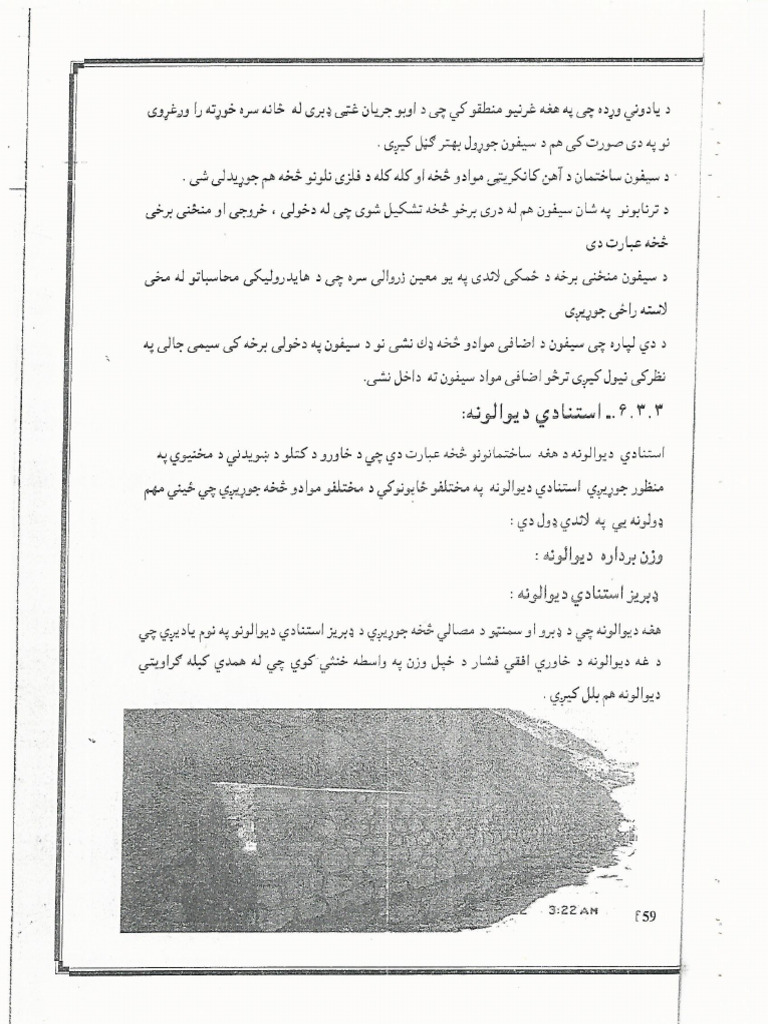 د يادوني وړده چی په هغه غرنيو منطقو کي چی د اوبو جريان غټی ډبری له څانه سره خورته را وړغړوی
نو په دی صورت کی هم د سيفون جوړول بهتر ګڼل کيږی .
د سيفون ساختمان د آهن کانکريټی موادو څخه او کله کله د فلزی نلونو څخه هم جوړيدلی شی .
د ترنابونو په شان سيفون هم له دری برخو څخه تشکيل شوی چی له دخولی ، خروجی او منځنی برخی
څخه عبارت دی
د سيفون منځنی برخه د ځمکی لاندی په يو معين ژروالی سره چی د هايدروليکی محاسباتو له مخی
لاسته راځی جوړيږی
د دي لپاره چی سيفون د اضافی موادو څخه ډك نشی نو د سيفون په دخولی برخه کی سيمی جالی په
نظرکی نيول کيږی ترڅو اضافی مواد سيفون ته داخل نشی.
۶.۳.۳.ـ استنادي ديوالونه:
استنادي ديوالونه د هغه ساختمانونو څخه عبارت دي چي د خاورو د کتلو د ښويدني د مخنيوي په
منظور جوړيږي استنادي ديوالونه په مختلفو ځايونوکي د مختلفو موادو څخه جوړيږي چي ځيني مهم
ډولونه يي په لاندي ډول دي :
وزن برداره ديوالونه :
ډبريز استنادي ديوالونه :
هغه ديوالونه چي د ډبرو او سمنټو د مصالي څخه جوړيږي د ډبريز استنادي ديوالونو په نوم ياديږي چي
د غه ديوالونه د خاوري افقي فشار د خپل وزن په واسطه خنثي کوي چي له همدي کبله ګراويټي
ديوالونه هم بلل کيږي .
3:22 AM
59